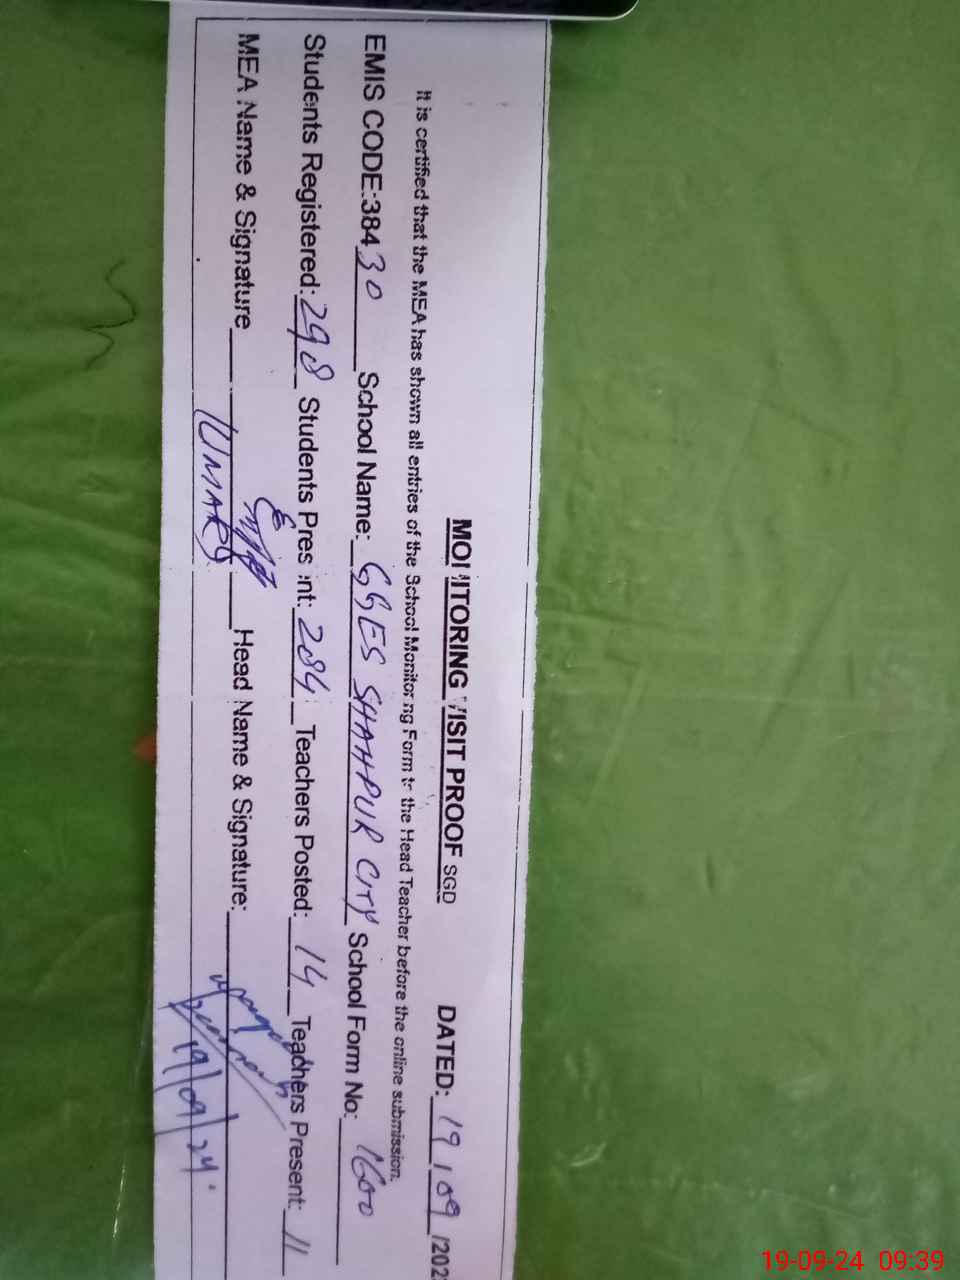 MONITORING VISIT PROOF SGD DATED: 19/09/202
It is certified that the MEA has shown all entries of the School Monitoring Form to the Head Teacher before the online submission.
EMIS CODE:38430 School Name: GGES SHAHPUR CITY School Form No: 1600
Students Registered: 298 Students Present: 284 Teachers Posted: 14 Teachers Present: 11
MEA Name & Signature UMAR Head Name & Signature:
19/09/24
19-09-24 09:39